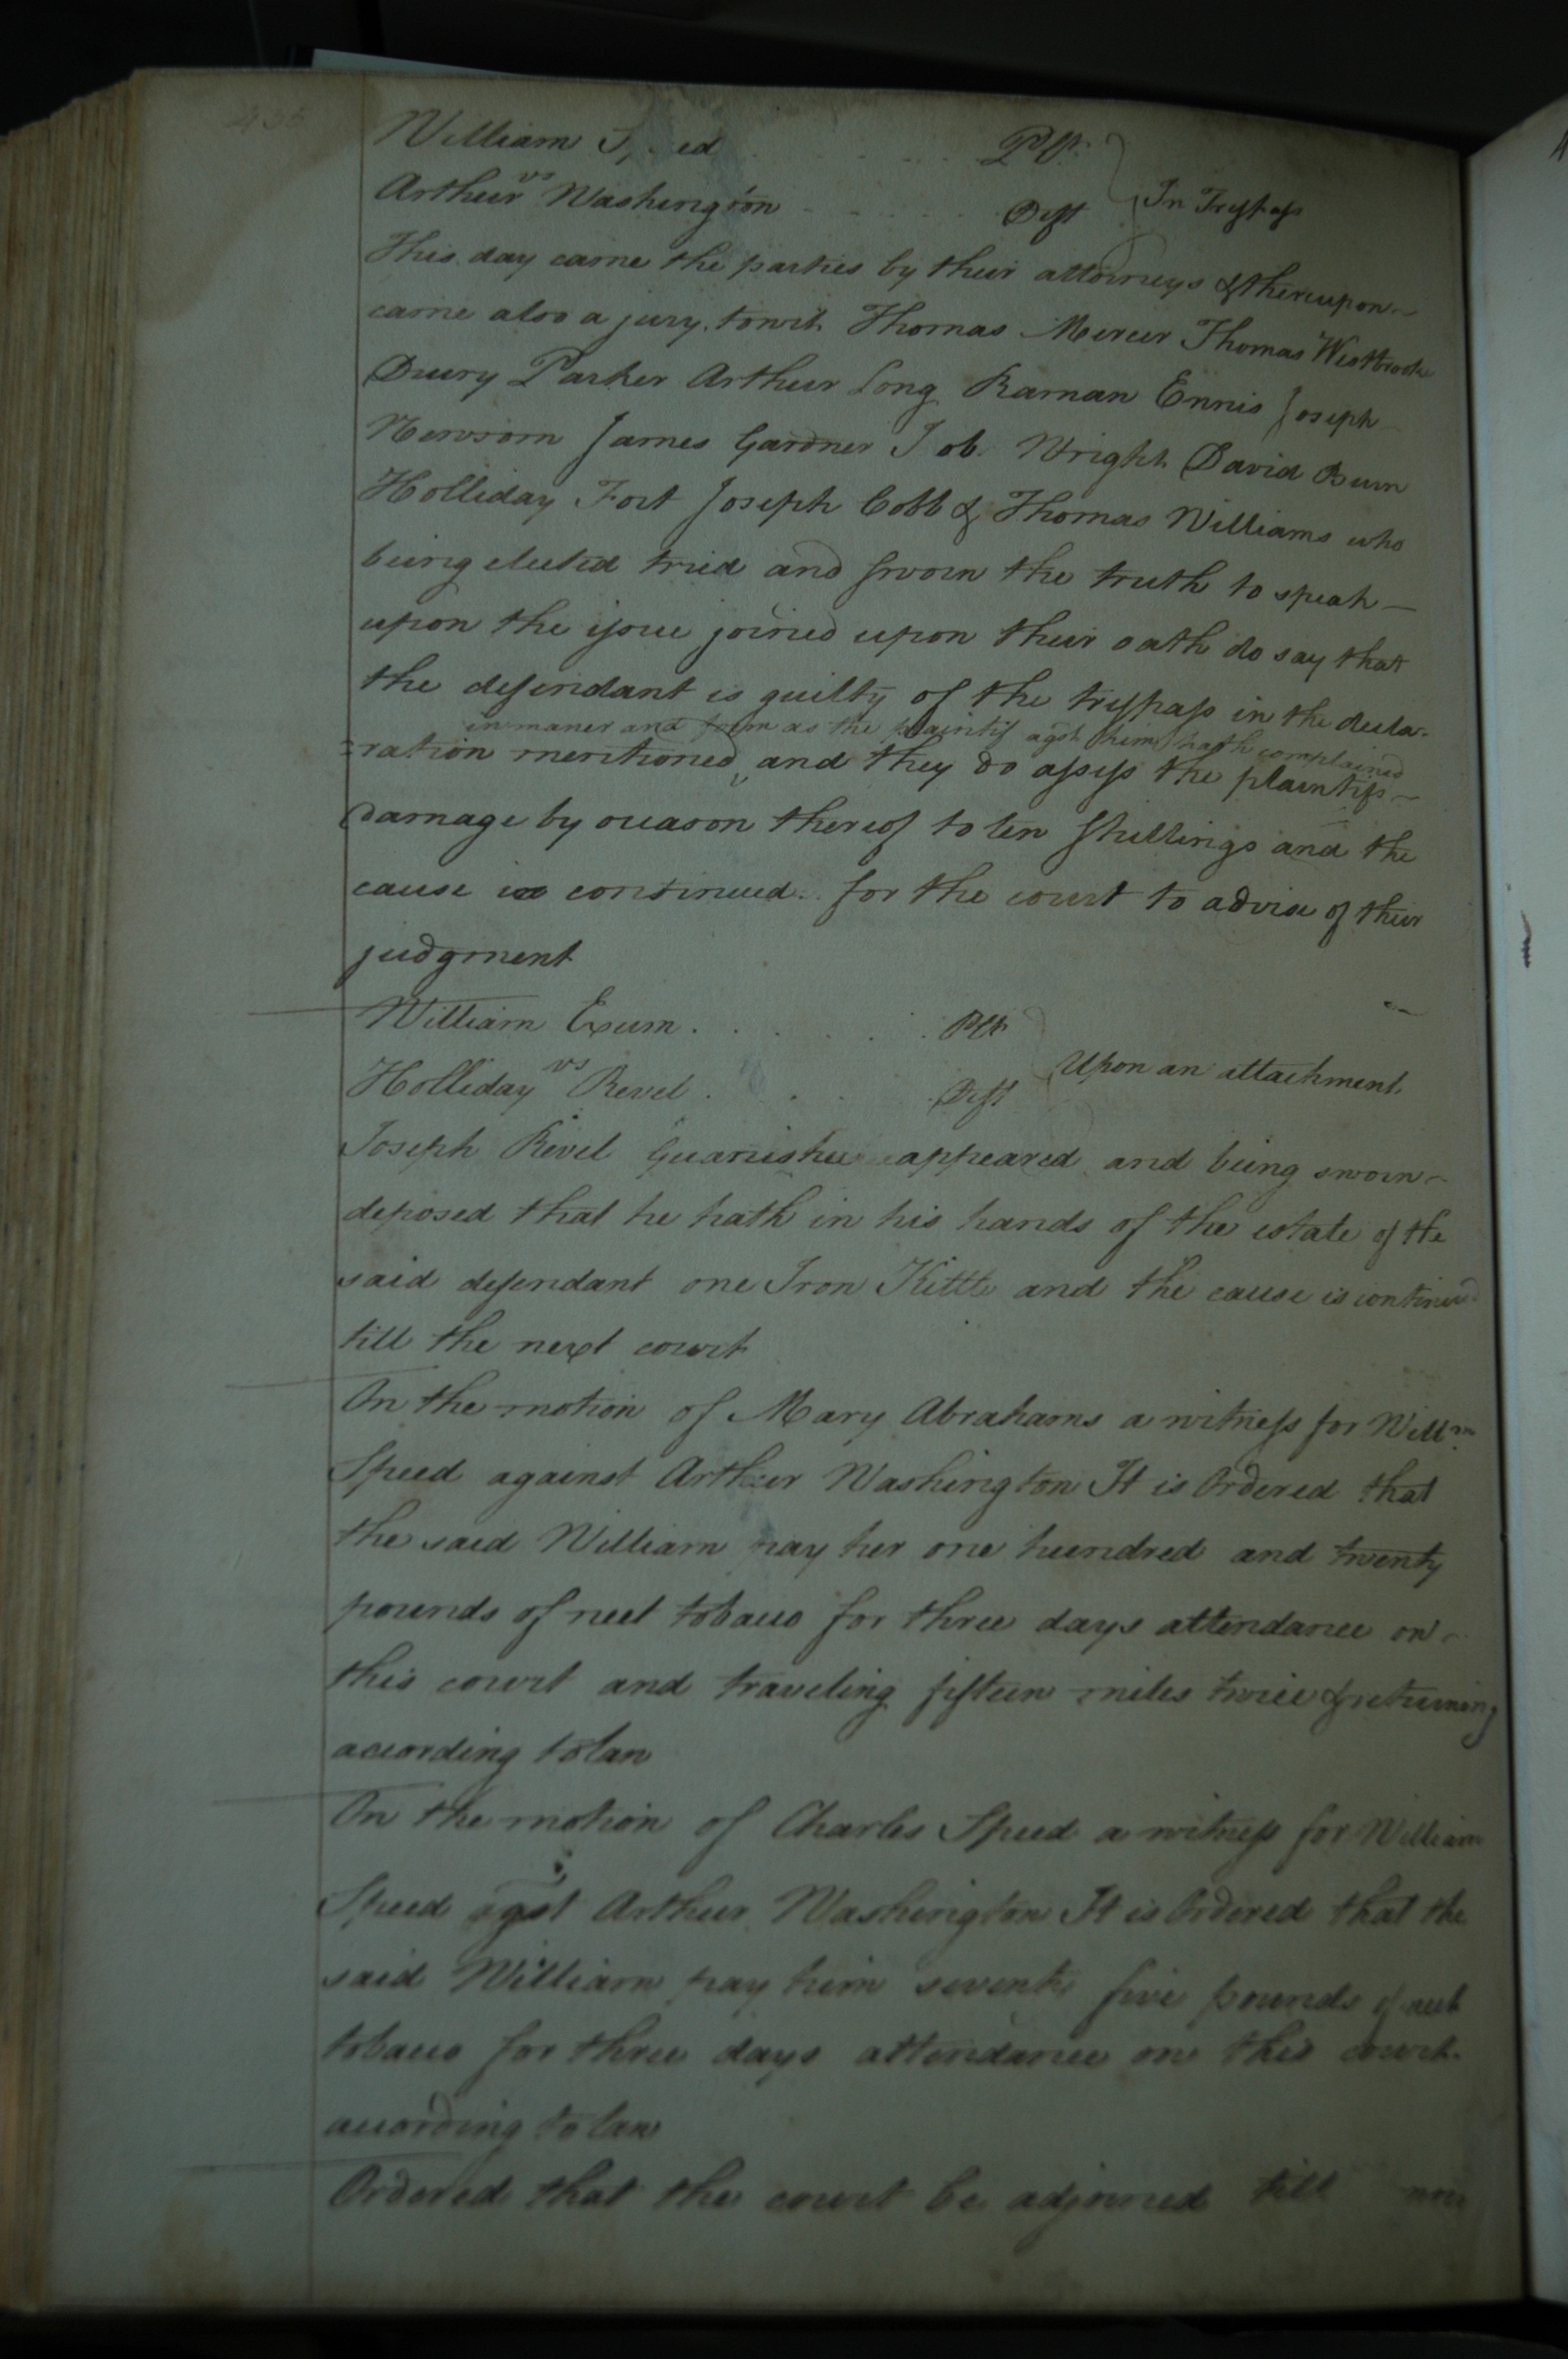 William Speed Plt
vs
Arthur Washington Deft In Trespass
This day came the parties by their attorneys & thereupon
came also a jury towit Thomas Mercer Thomas Westbrook
Drury Parker Arthur Long Raman Ennis Joseph
Newsom James Gardner Job Wright David Burn
Holliday Fort Joseph Cobb & Thomas Williams who
being elected tried and sworn the truth to speak
upon the issue joined upon their oath do say that
the defendant is guilty of the trespass in the decla-
in maner and form as the plaintif agst him hath complained
ration mentioned and they do assess the plaintifs
damage by reason thereof to ten shillings and the
cause is continued for the court to advise of their
judgment
William Exum Plt
vs
Holliday Revel Deft Upon an attachment
Joseph Revel Guarnishee appeared and being sworn
deposed that he hath in his hands of the estate of the
said defendant one Iron Kittle and the cause is continued
till the next court
On the motion of Mary Abrahams a witness for Willm
Speed against Arthur Washington It is Ordered that
the said William pay her one hundred and twenty
pounds of neet tobacco for three days attendance on
this court and traveling fifteen miles twice & returning
according to law
On the motion of Charles Speed a witness for William
Speed agst Arthur Washington It is Ordered that the
said William pay him seventy five pounds of neet
tobacco for three days attendance on this court
according to law
Ordered that the court be adjorned till